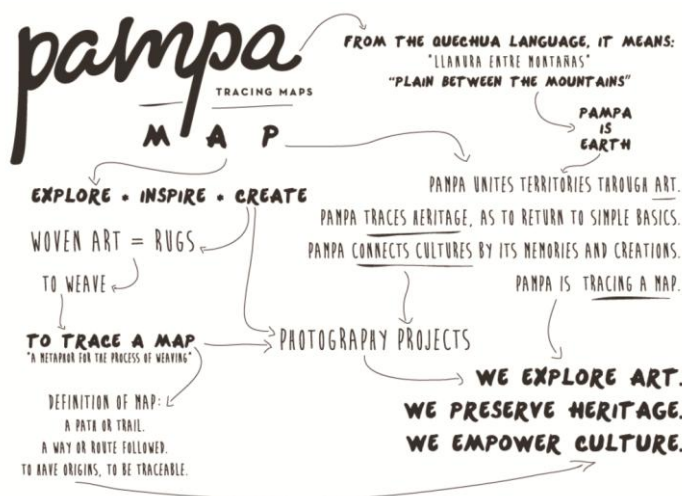 pampa
TRACING MAPS
MAP
FROM THE QUECHUA LANGUAGE, IT MEANS:
"LLANURA ENTRE MONTAÑAS"
"PLAIN BETWEEN THE MOUNTAINS"
PAMPA
IS
EARTH
EXPLORE • INSPIRE • CREATE
WOVEN ART = RUGS
TO WEAVE
TO TRACE A MAP
"A METAPHOR FOR THE PROCESS OF WEAVING"
DEFINITION OF MAP:
A PATH OR TRAIL.
A WAY OR ROUTE FOLLOWED.
TO HAVE ORIGINS, TO BE TRACEABLE.
PAMPA UNITES TERRITORIES THROUGH ART.
PAMPA TRACES HERITAGE, AS TO RETURN TO SIMPLE BASICS.
PAMPA CONNECTS CULTURES BY ITS MEMORIES AND CREATIONS.
PAMPA IS TRACING A MAP.
PHOTOGRAPHY PROJECTS
WE EXPLORE ART.
WE PRESERVE HERITAGE.
WE EMPOWER CULTURE.